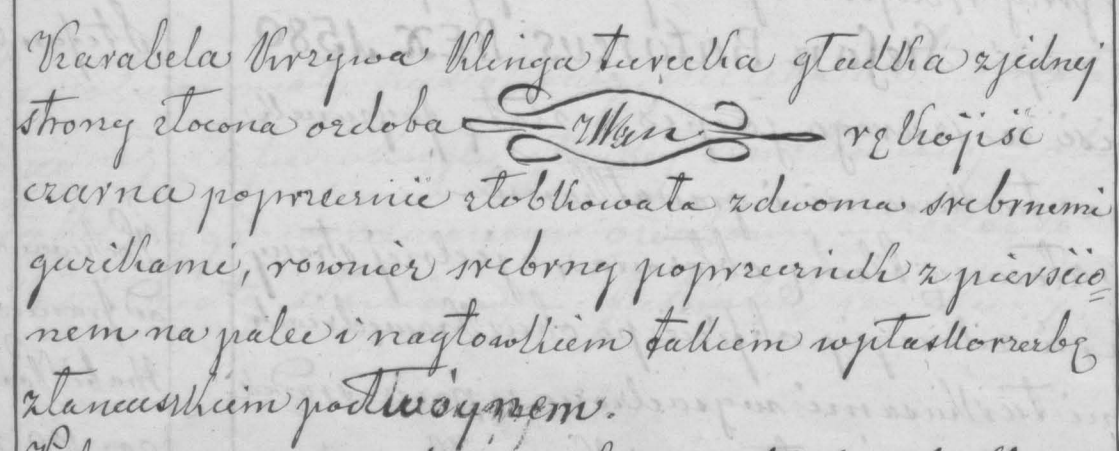 Karabela krzywa klinga turecka gładka z jednej
strony złocona ozdoba rękojiść
czarna poprzecznie złobkowata z dwoma srebrnemi
guzikami, rownież srebrny poprzecznik z pierście=
nem na palec i nagłowkiem takiem w płaskorzezbę
złancuszkiem podwóynem.